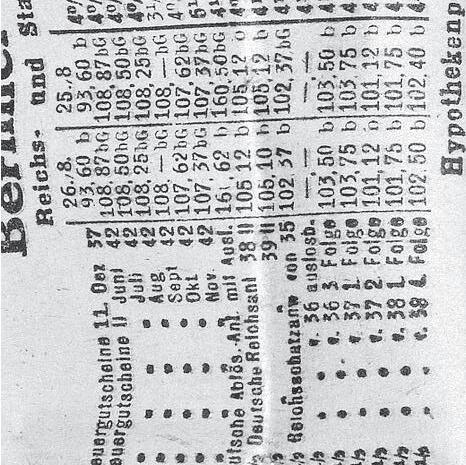 Berliner
Reichs- und Sta
26.8. 25.8
euergutscheine 11 Dez 37 93,60 b 93,60 b
euergutscheine II Juni 42 108,87bG 108,87bG
• • • Juli 42 108,50bG 108,50bG
• • • Aug 42 108,25bG 108,25bG
• • • Sept 42 108,—bG 108,—bG
• • • Okt 42 107,62bG 107,62bG
• • • Nov. 42 107,37bG 107,37bG
utsche Ablös.-Anl. mit Ausl. 62 b 160,50bG
Deutsche Reichsanl 38 II 105,12 b 105,12 b
39 II 105,10 b 105,12 b
Reichsschatzanw von 35 102,37 b 102,37bG
• • • v. 36 auslosb. —,— —,—
• • • v. 36 3 Folge 103,50 b 103,50 b
• • • v. 37 1. Folge 103,75 b 103,75 b
• • • v. 37 2 Folge 101,12 b 101,12 b
• • • v. 38 1. Folge 101,75 b 101,75 b
• • • v. 38 Folge 102,50 b 102,40 b
Hypothekenp